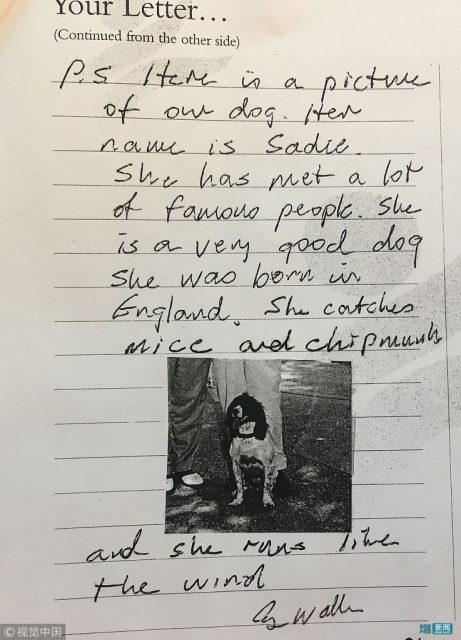 Your Letter...
(Continued from the other side)
P.S Here is a picture
of our dog. Her
name is Sadie.
She has met a lot
of famous people. She
is a very good dog
She was born in
England. She catches
mice and chipmunks
and she runs like
the wind
G. Walker
©视觉中国
新闻